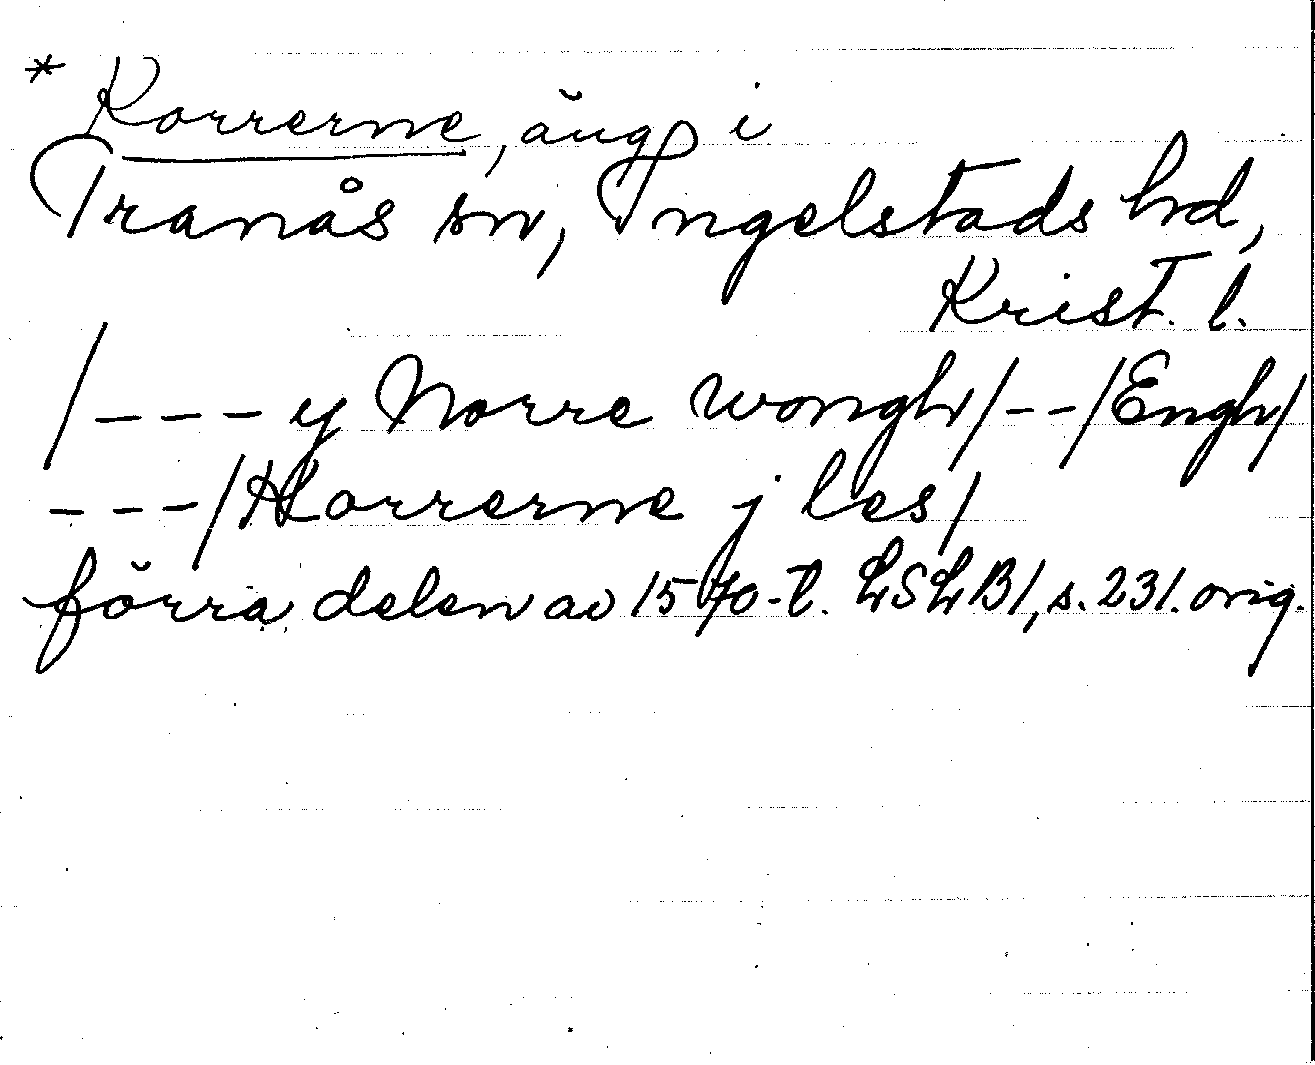 * Korrerne, äng i
Tranås sn, Ingelstads hd,
Krist. l.
/--- y Norre wongh/--/Engh/
---/Korrerne j les/
förra delen av 1570-t. LSLB1, s. 231. orig.